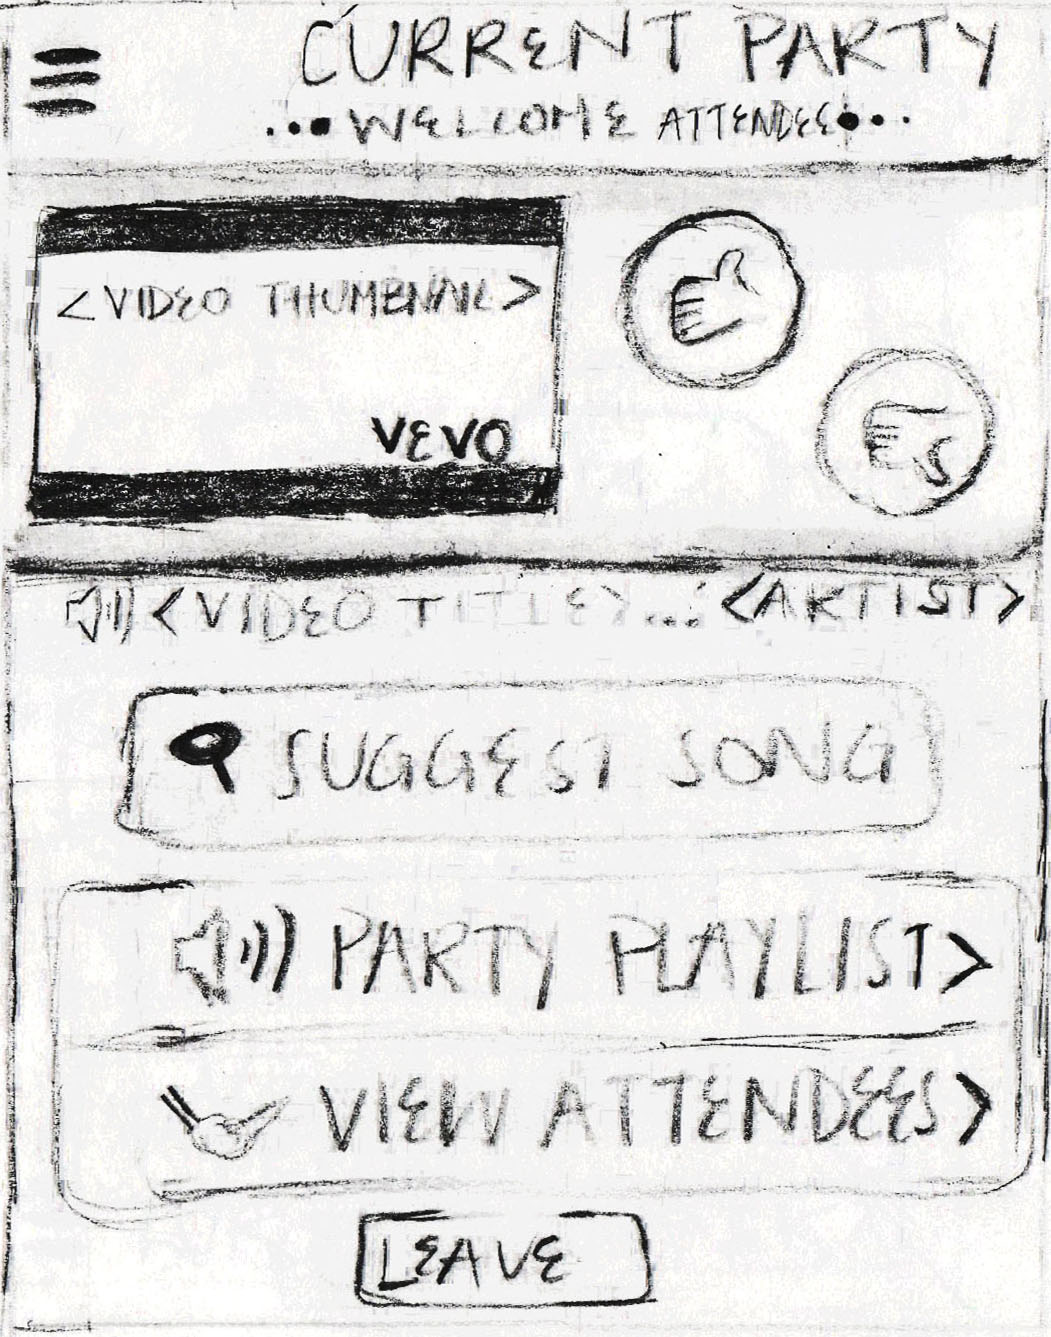 CURRENT PARTY
...WELCOME ATTENDEE...
<VIDEO THUMBNAIL>
VEVO
<VIDEO TITLE>...: <ARTIST>
SUGGEST SONG
PARTY PLAYLIST>
VIEW ATTENDEES>
LEAVE